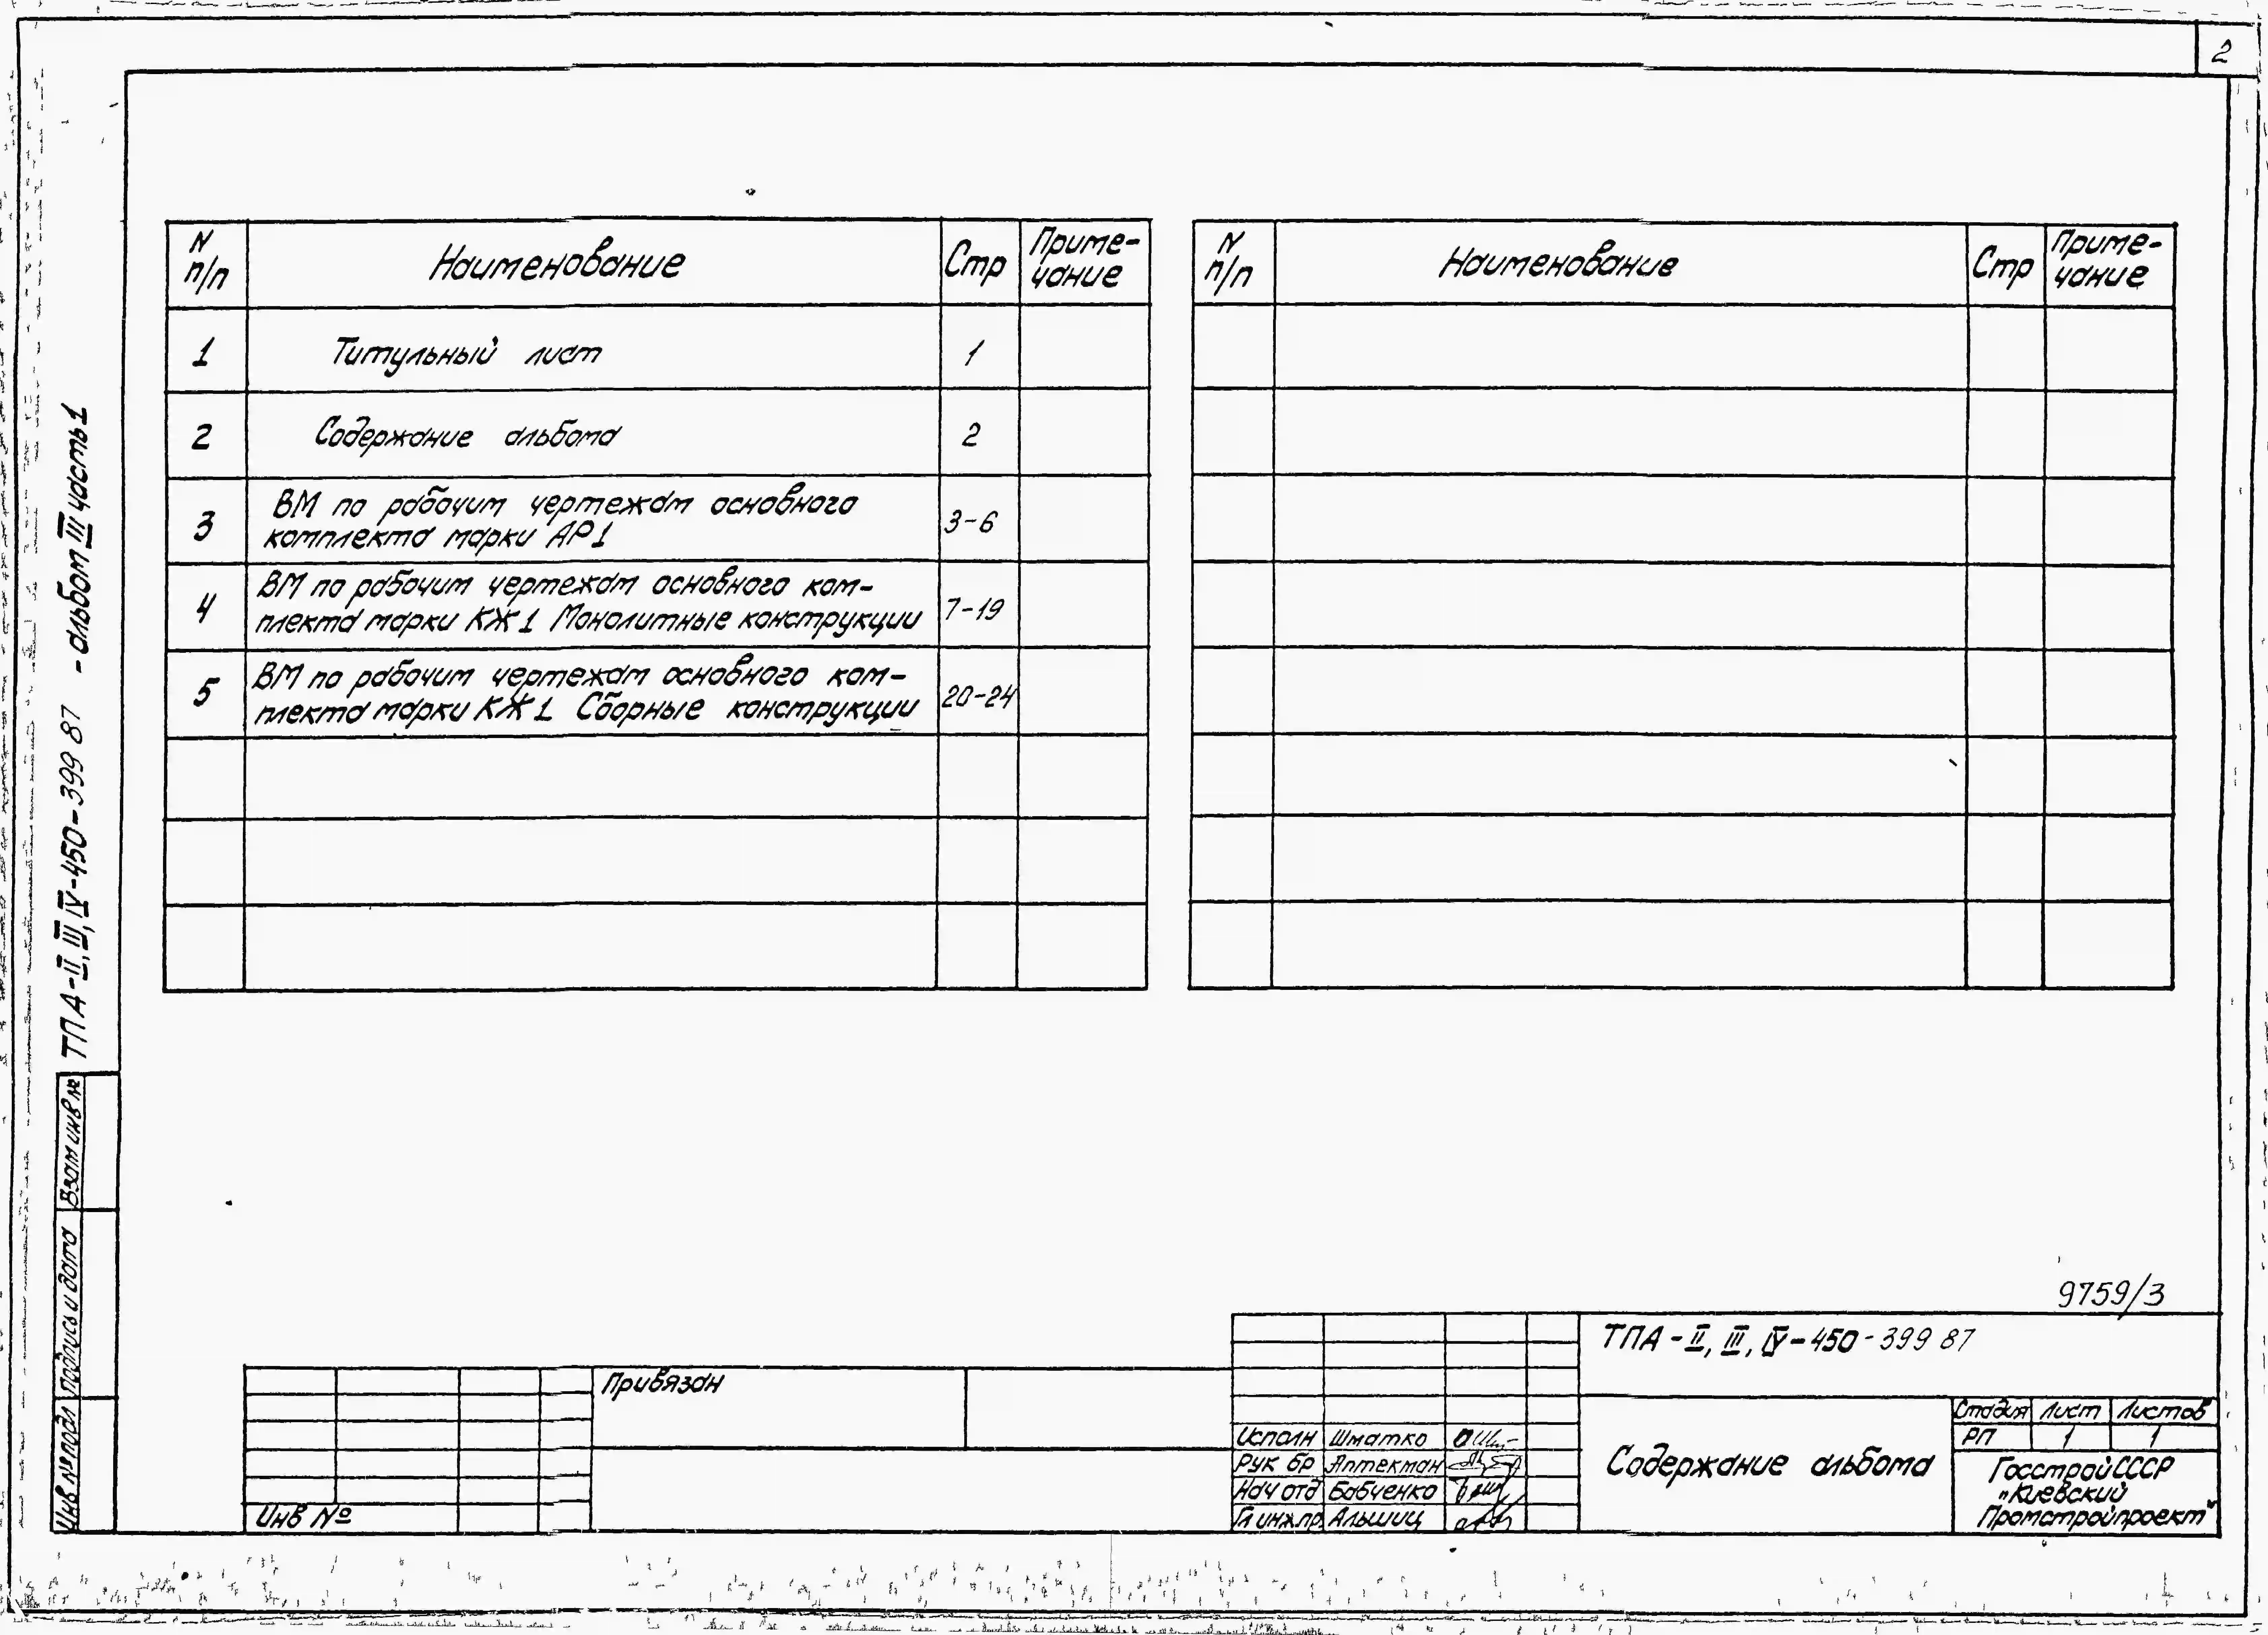 2
N
п/п
Наименование
Стр
Приме-
чание
1
Титульный лист
1
2
Содержание альбома
2
3
ВМ по рабочим чертежам основного
комплекта марки АР1
3-6
4
ВМ по рабочим чертежам основного ком-
плекта марки КЖ1 Монолитные конструкции
7-19
5
ВМ по рабочим чертежам основного ком-
плекта марки КЖ1 Сборные конструкции
20-24
N
п/п
Наименование
Стр
Приме-
чание
ТПА-II, III, IV-450-399 87 - альбом III часть 1
Взам инв №
Подпись и дата
Инв № подл
9759/3
ТПА-II, III, IV-450-399 87
Привязан
Инв №
Исполн Шматко
Рук бр Аптекман
Нач отд Бабченко
Гл инж.пр. Альшиц
Содержание альбома
Стадия Лист Листов
РП 1 1
Госстрой СССР
"Киевский
Промстройпроект"